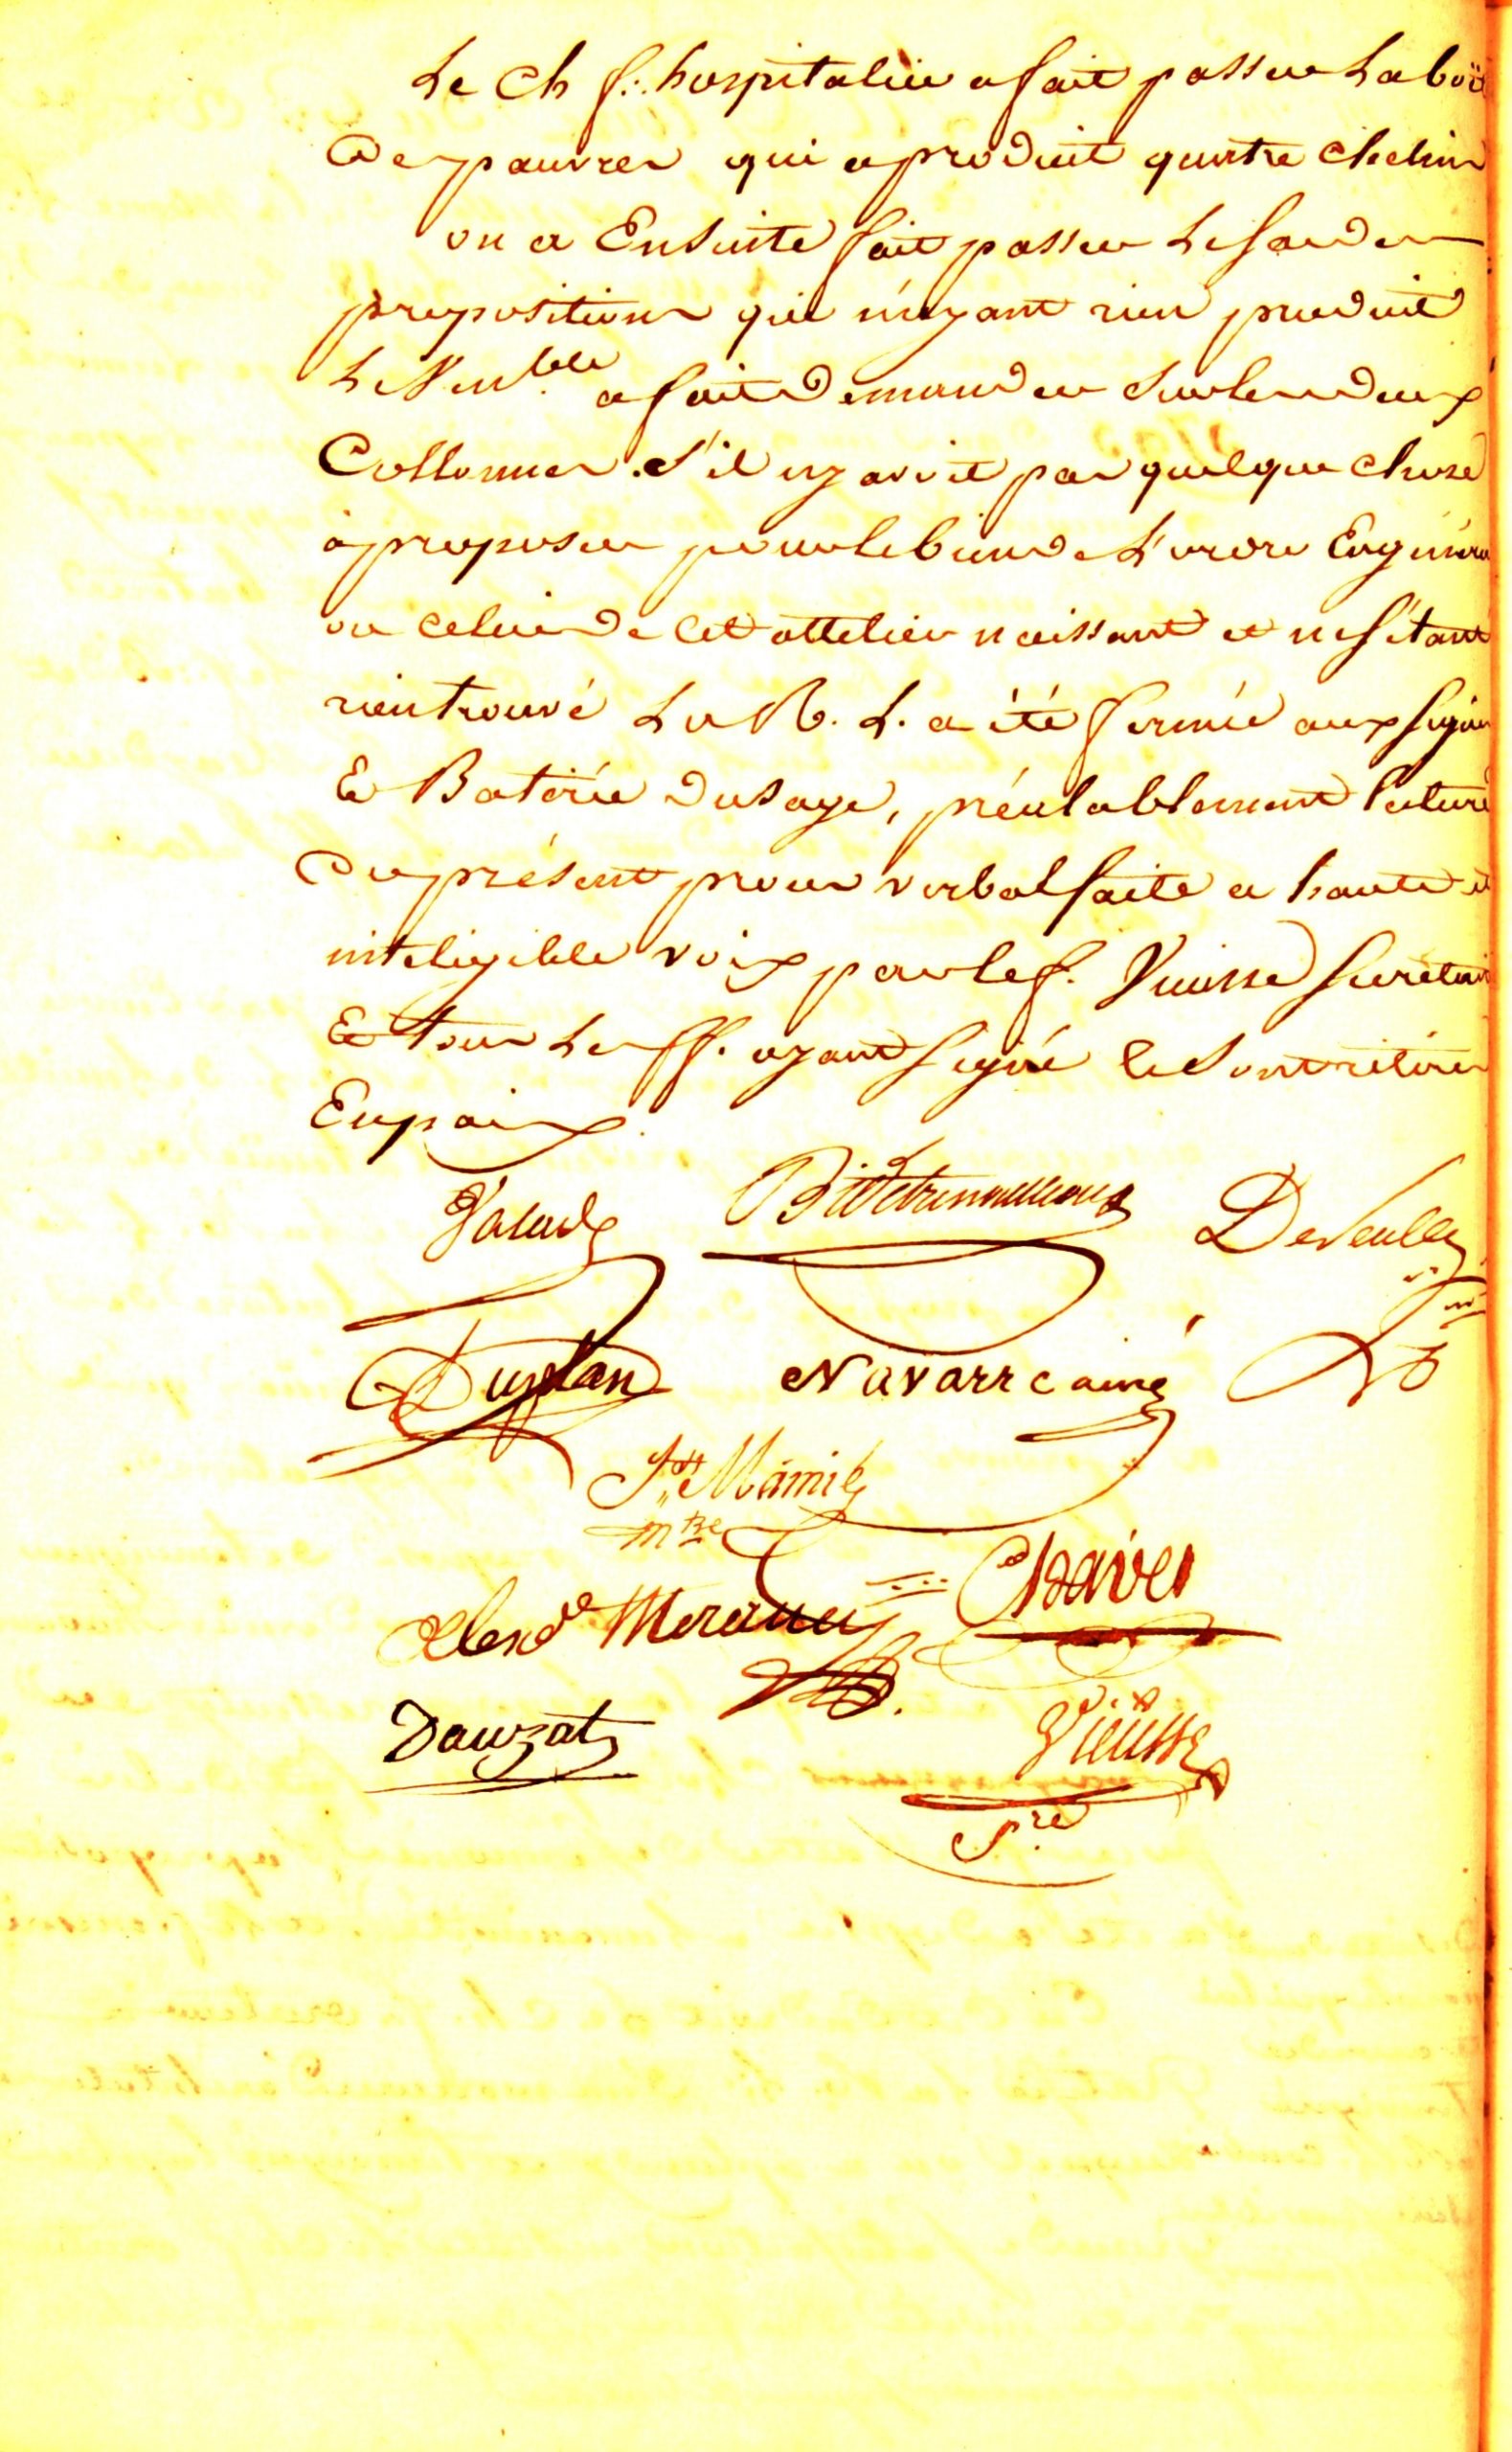 Le Ch f∴ hospitalier a fait passer La boit
des pauvres qui a produit quatre chelins
on a Ensuite fait passer Le sac des
propositions qui n'ayant rien produit
Le Ven.ble a fait demander sur les deux
Collonnes s'il n'y avoit pas quelque chose
à proposer pour le bien de L'ordre En généra
ou celui de cet attelier naissant et ne s'étant
rien trouvé La R. L. a été fermée aux signes
& Baterie dusage, préalablement lecture
du présent procès verbal faite a haute et
inteligible voix par le f. Vieusse secretair
Et tous Les ff. ayant signé Se Sont retirés
En paix
Valade
DeVeulle
Duplan
Navarre ainé
J.te Mamily
m tre
Alex.dre Meraun
Chavet
Dauzat
Vieüsse
S.re